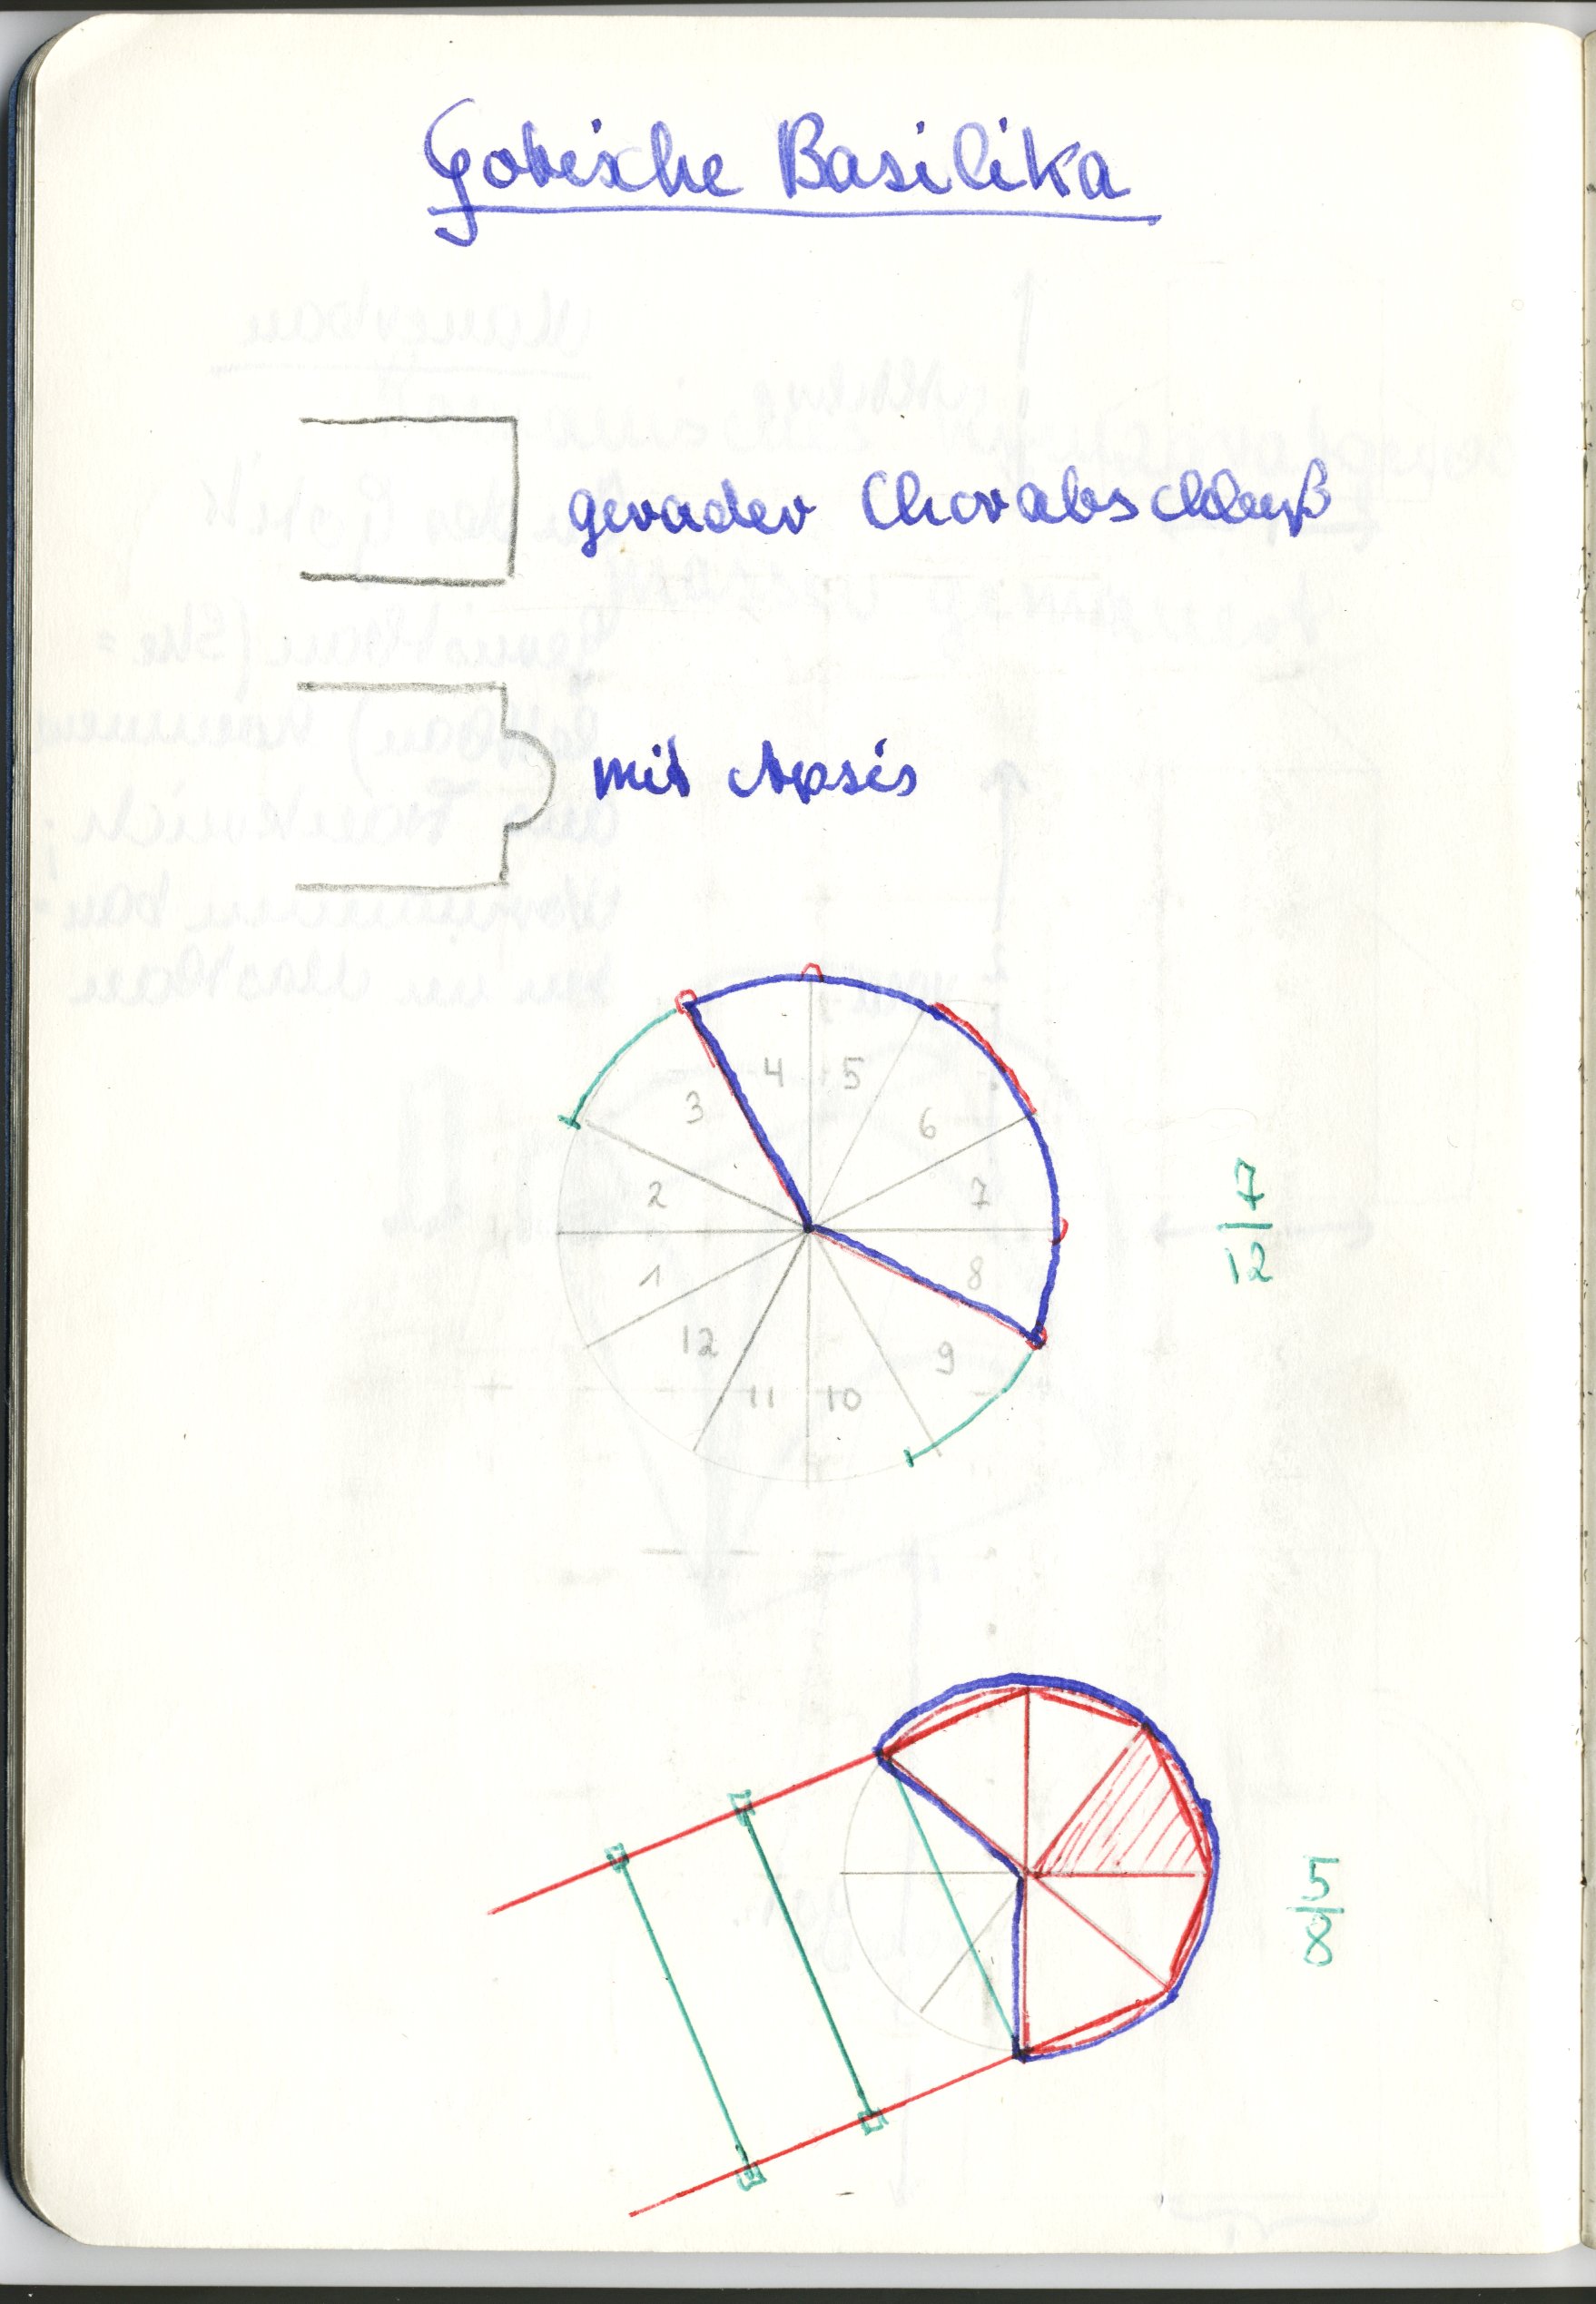 Gotische Basilika
gerader Chorabschluß
mit Apsis
4 5
3 6
2 7
1 8
12 9
11 10
7
12
5
8